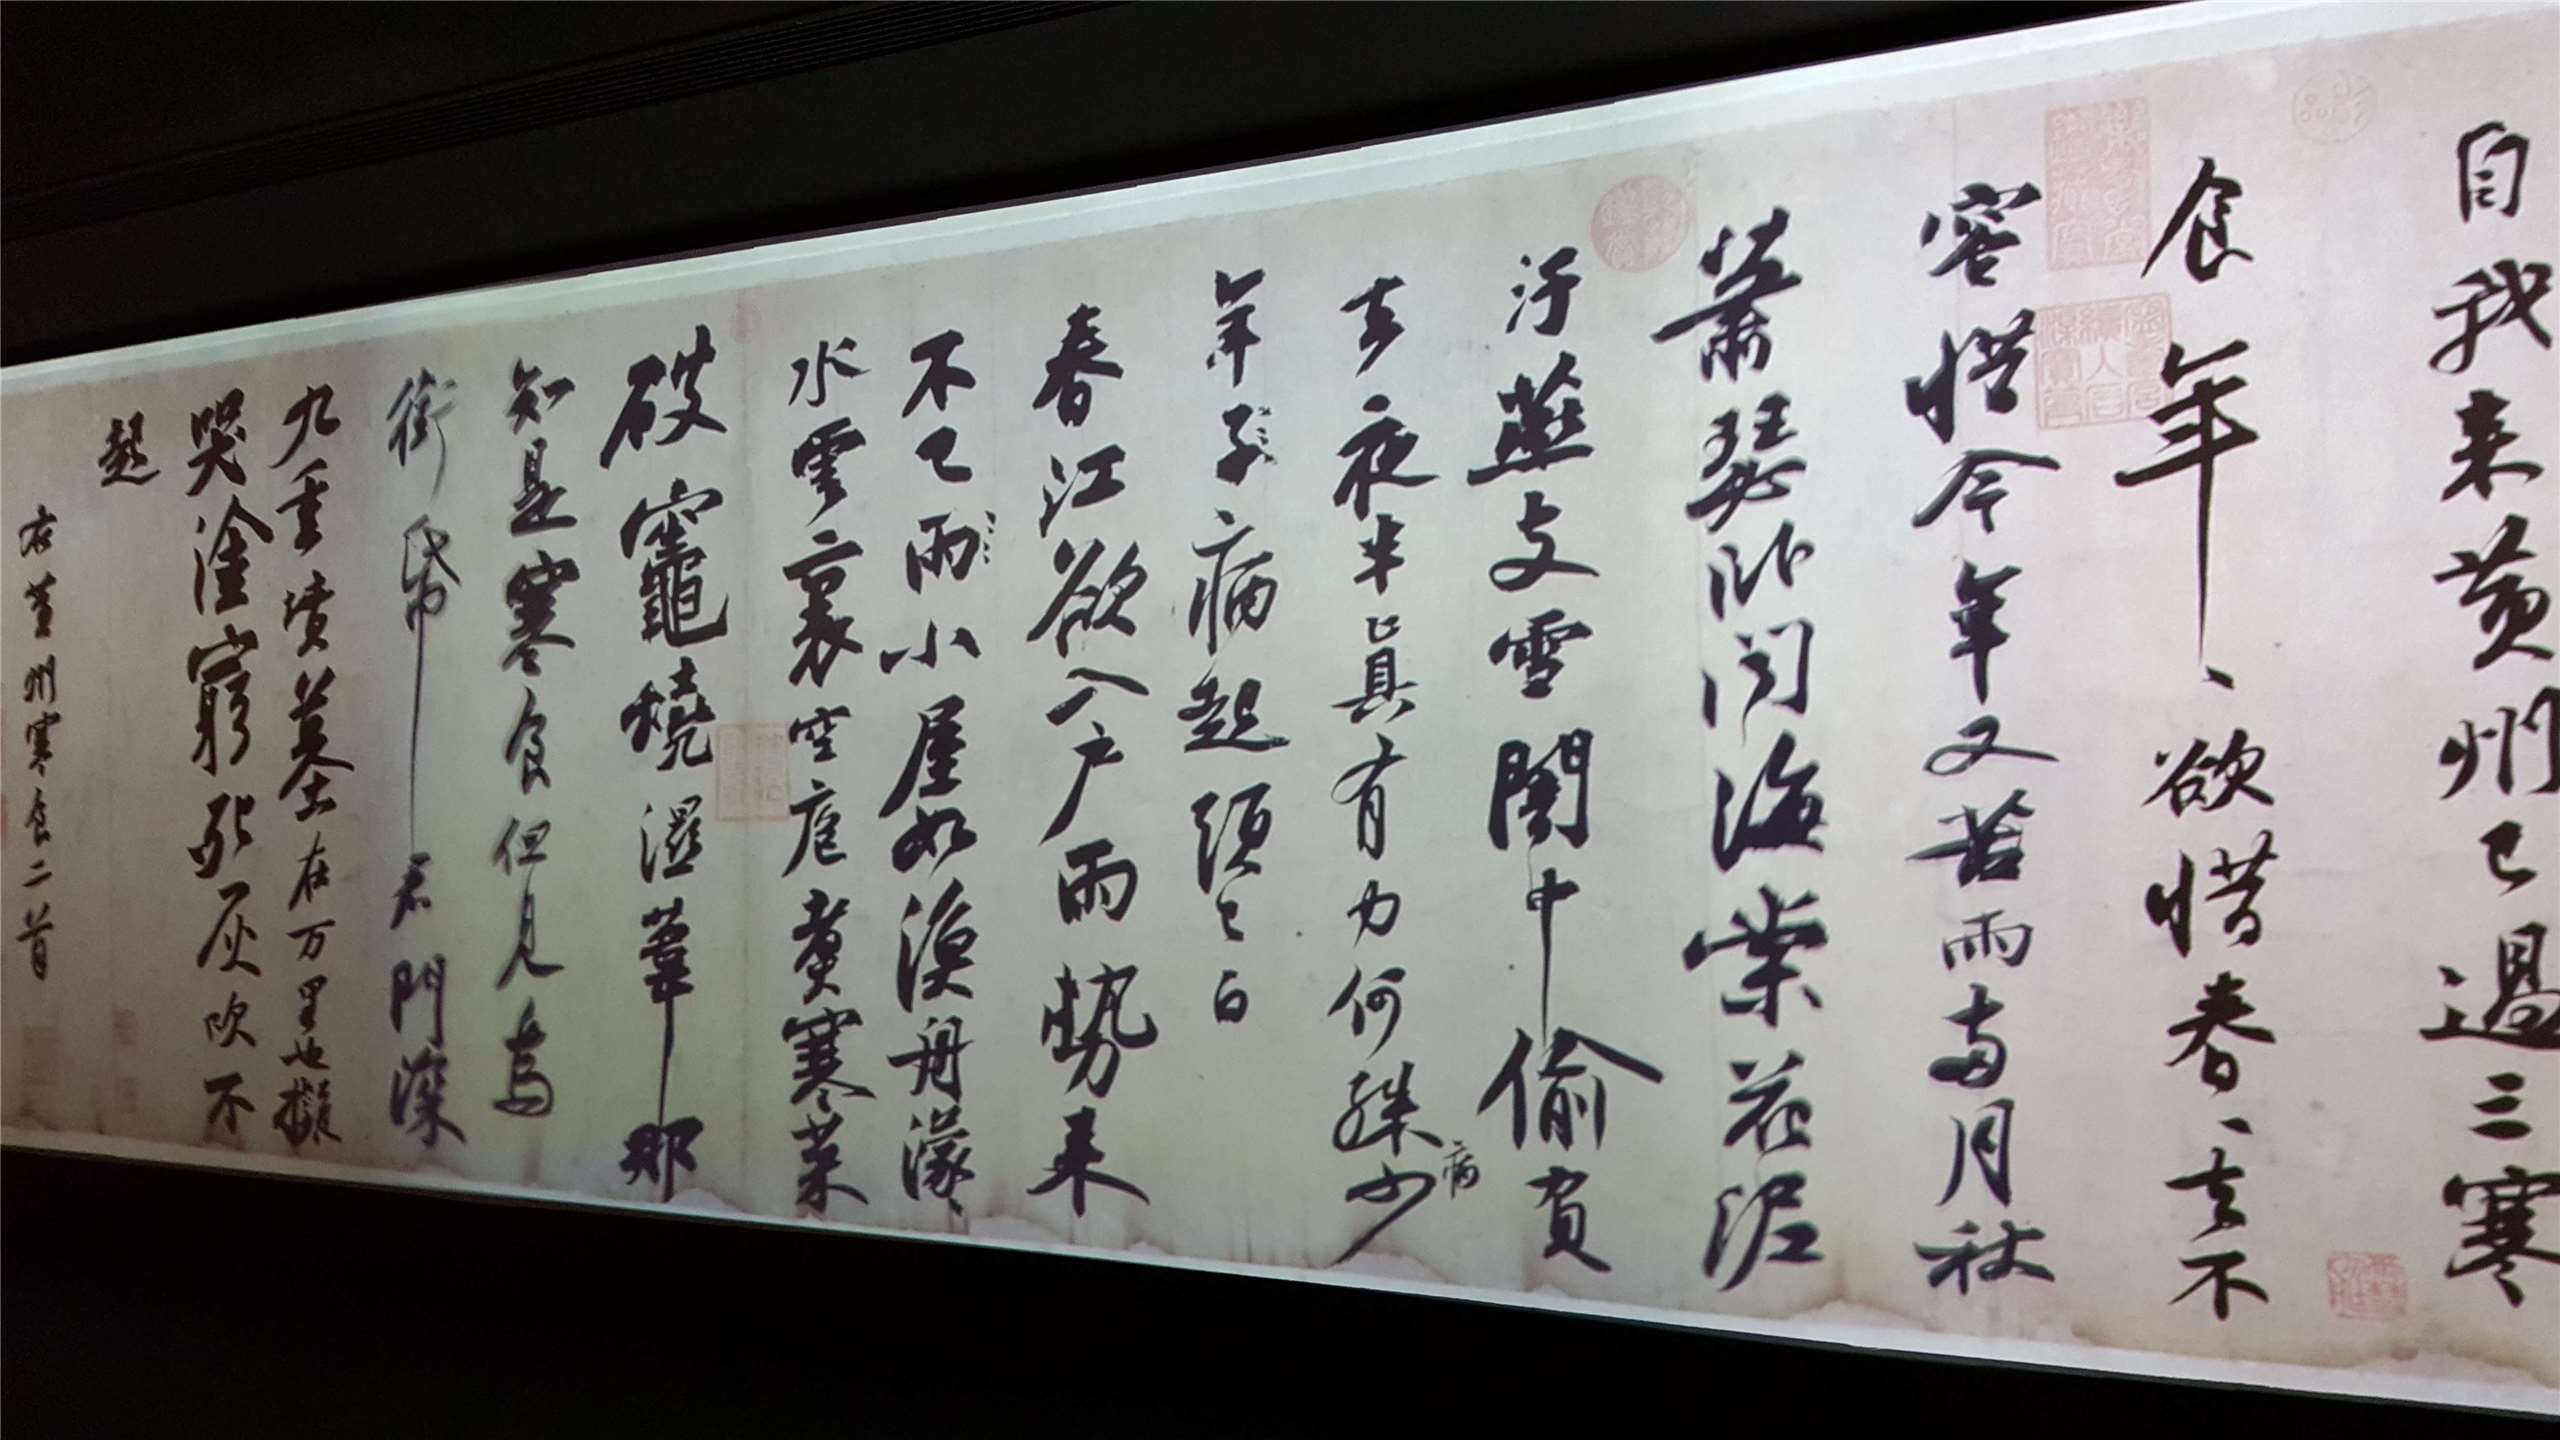 自我来黄州已過三寒
食年、欲惜春、去不
容惜今年又苦雨兩月秋
蕭瑟卧聞海棠花泥
汙燕支雪闇中偷負
去夜半真有力何殊病少
年子病起頭已白
春江欲入户雨勢来
不已雨小屋如漁舟濛、
水雲裏空庖煮寒菜
破竈燒濕葦那
知是寒食但見烏
銜帋君門深
九重墳墓在万里也擬
哭塗窮死灰吹不
起
右黄州寒食二首